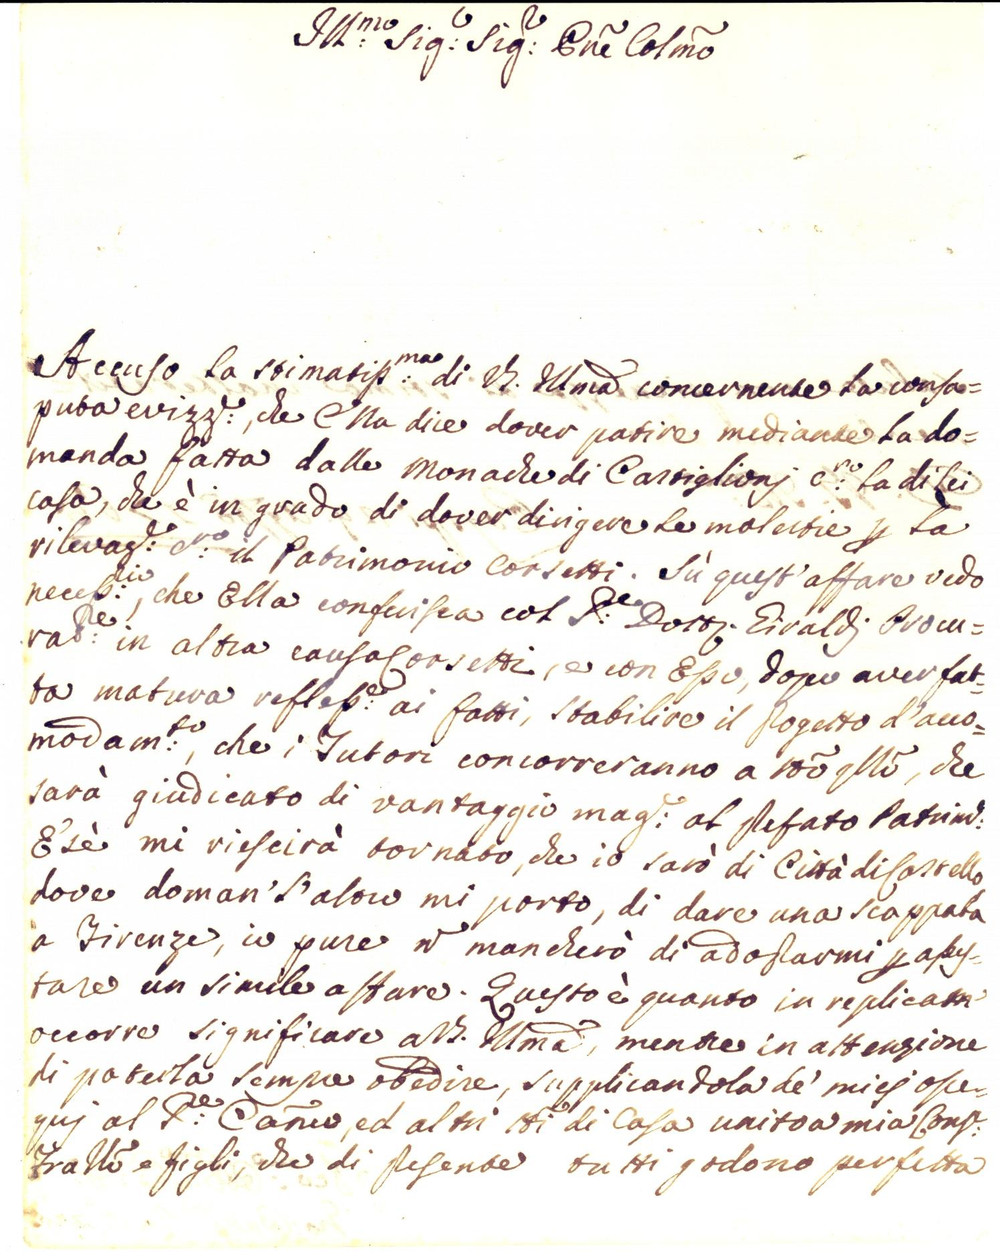 Ill:mo Sig:r Sig:r Pne Colmo
Accuso la stimatiss:ma di V. Illma concernente la consa=
puta evizz:e, che Ella dice dover patire mediante la do=
manda fatta dalle Monache di Castiglionj c:ro la di Lei
casa, che è in grado di dover dirigere le molestie p la
rilevaz:e c:ro il Patrimonio Corsetti. Sù quest'affare vedo
necess:rio, che Ella conferisca col S:re Dott: Eiraldj Procu=
rat:re in altra causa Corsetti, e con Esso, dopo aver fat=
ta matura refless:e ai fatti, stabilire il progetto d'acco=
modam:to, che i Tutori concorreranno a tto qllo, che
sarà giudicato di vantaggio mag:e al prefato Patrim:
E sè mi riescirà tornato, che io sarò di Città di Castello
dove doman s'altro mi porto, di dare una scappata
a Firenze, io pure n mancherò di adoprarmi p asses=
tare un simile affare. Questo è quanto in replicam
occorre significare a V. Illma, mentre in attenzione
di poterla sempre obedire, supplicandola de' miej osse=
quj al S:re Canco, ed altri tti di Casa unito a mia Cons:
Fratllo e figli, che di presente tutti godono perfetta